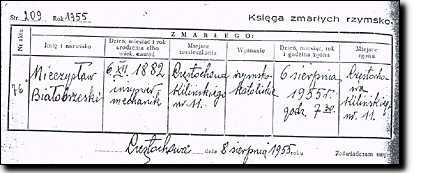 Str. 209. Rok 1955. Księga zmarłych rzymsko
ZMARŁEGO:
Nr aktu
Imię i nazwisko
Dzień, miesiąc i rok urodzenia albo wiek, zawód
Miejsce zamieszkania
Wyznanie
Dzień, miesiąc, rok i godzina zgonu
Miejsce zgonu
76
Mieczysław
Białobrzeski
6 XII 1882
inżynier
mechanik
Częstochowa
Kilińskiego
nr. 11.
rzymsko
katolickie
6 sierpnia
1955 r.
godz. 7 30.
Częstocho
wa
Kilińskiego
nr. 11.
Częstochowa dnia 8 sierpnia 1955.
Poświadczam